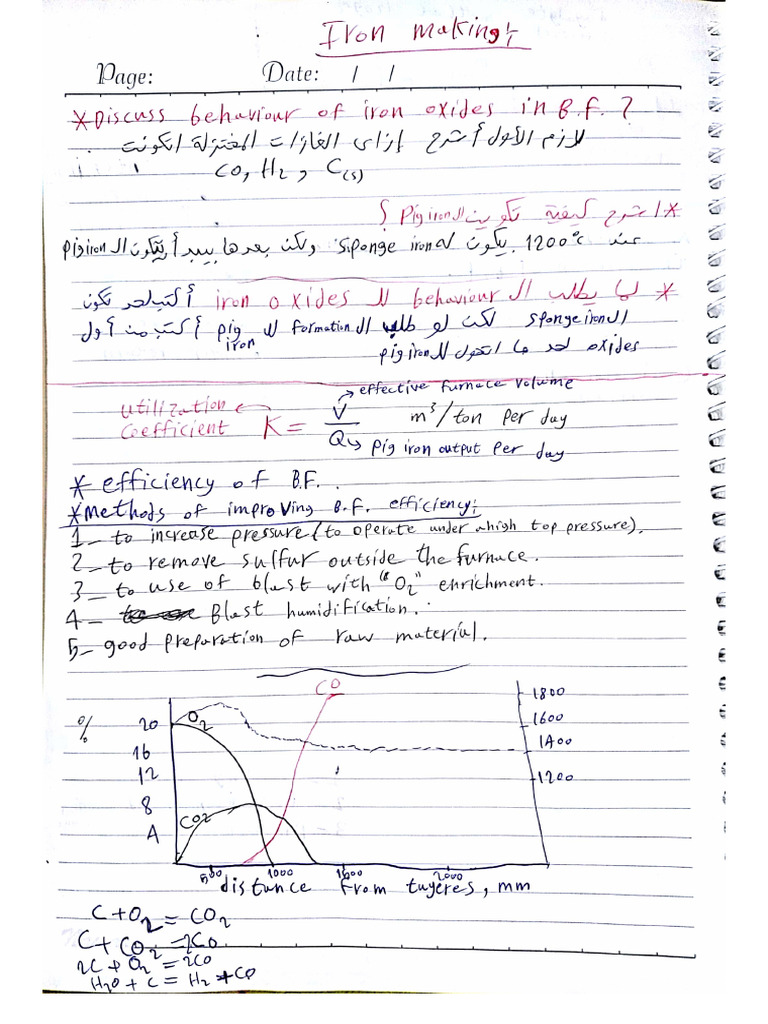 Iron making:
Page: Date: / /
* Discuss behaviour of iron oxides in B.F. ?
لازم الأول أشرح إزاى الغازات المختزلة اتكونت
CO, H2, C(s)
* اشرح كيفية تكوين الـ Pig iron ؟
عند 1200°c يتكون له Siponge iron ولكن بعدها يبدأ يتكون الـ Pig iron
* لما يطلب الـ behaviour للـ iron oxides أكتب لحد تكون
الـ Sponge iron لكن لو طلب الـ formation للـ pig iron أكتب من أول
oxides لحد ما اتحول للـ pig iron
utilization coefficient K = V/Q m3/ton per day
effective furnace volume
Pig iron output per day
* efficiency of B.F.
* Methods of improving B.F. efficiency:
1_ to increase pressure (to operate under a high top pressure).
2_ to remove sulfur outside the furnace.
3_ to use of blast with "O2" enrichment.
4_ Blast humidification.
5_ good preparation of raw material.
CO
% 20 O2 1800
16 1600
12 1400
8 1200
4 CO2
500 1000 1500 2000
distance from tuyeres, mm
C + O2 = CO2
C + CO2 = 2CO
2C + O2 = 2CO
H2O + C = H2 + CO